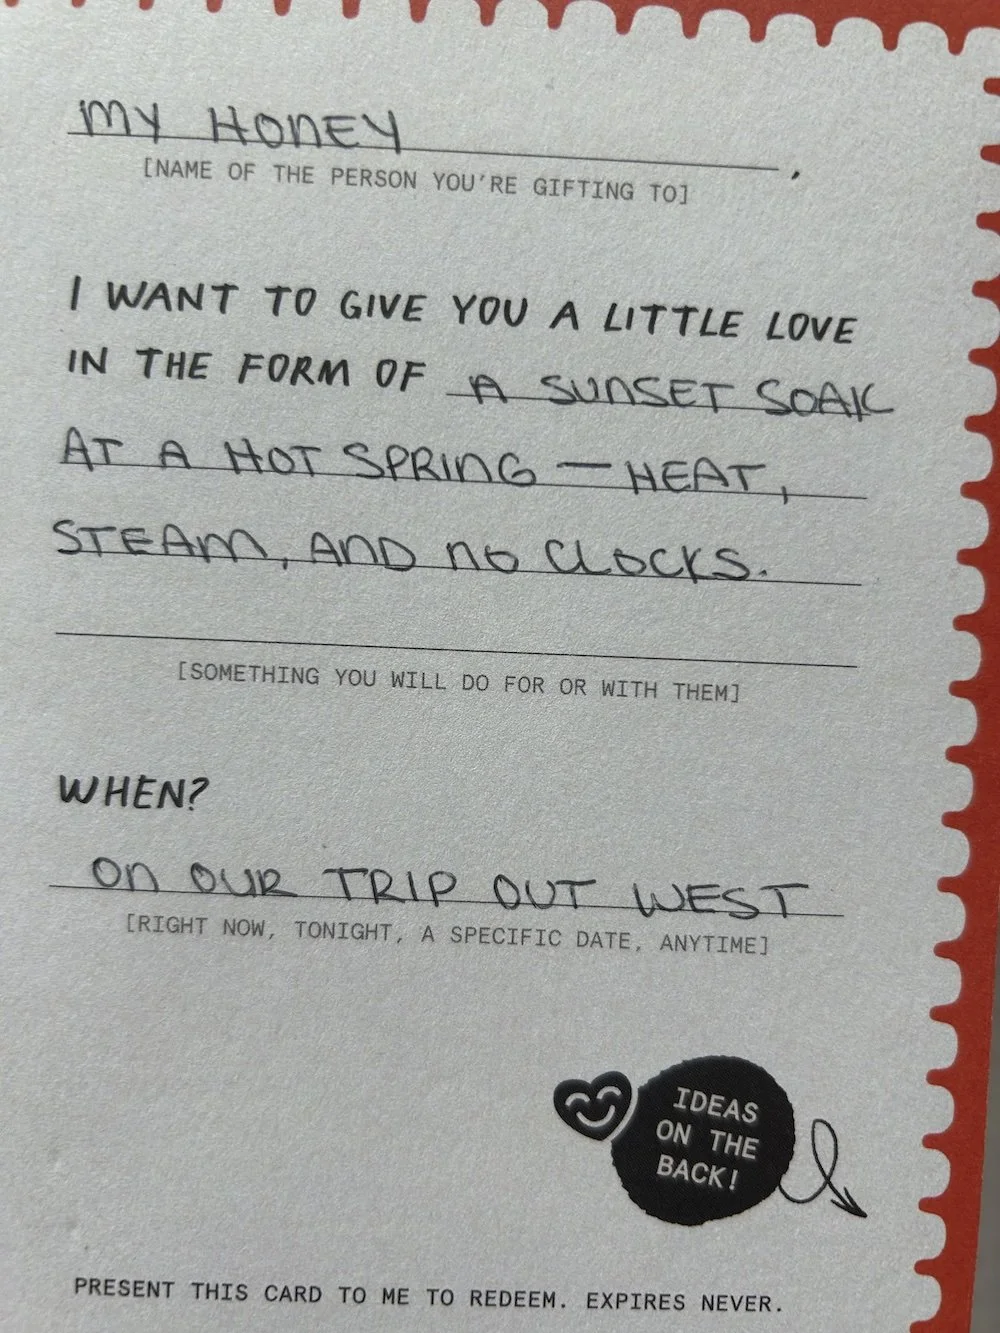 MY HONEY
[NAME OF THE PERSON YOU'RE GIFTING TO]
,
I WANT TO GIVE YOU A LITTLE LOVE
IN THE FORM OF A SUNSET SOAK
AT A HOT SPRING — HEAT,
STEAM, AND NO CLOCKS.
[SOMETHING YOU WILL DO FOR OR WITH THEM]
WHEN?
ON OUR TRIP OUT WEST
[RIGHT NOW, TONIGHT, A SPECIFIC DATE, ANYTIME]
IDEAS
ON THE
BACK!
PRESENT THIS CARD TO ME TO REDEEM. EXPIRES NEVER.